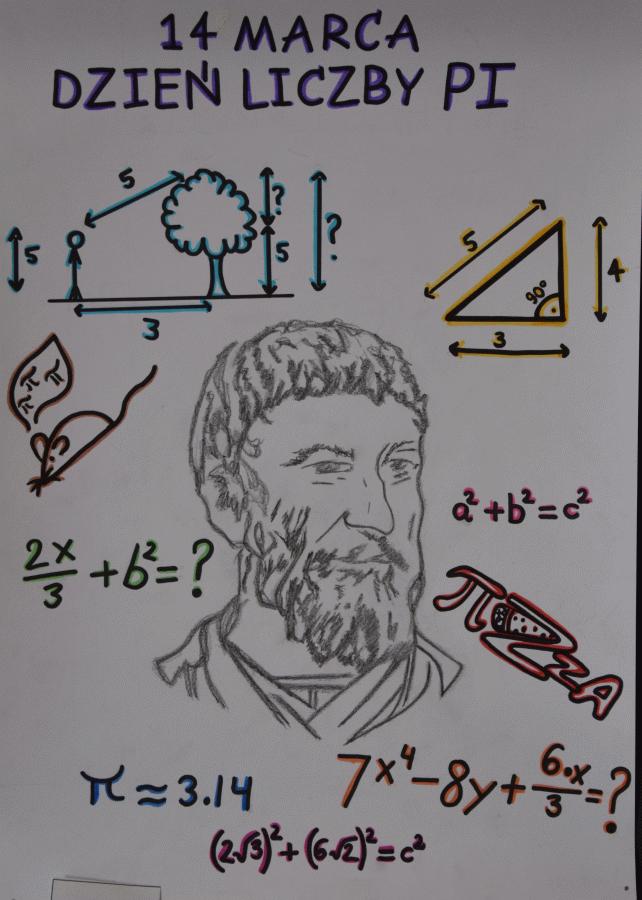 14 MARCA
DZIEŃ LICZBY PI
5
5
?
5
?
3
5
4
90°
3
π π
π
a² + b² = c²
2x/3 + b² = ?
πZZA
π ≈ 3.14
7x⁴ − 8y + 6·x/3 = ?
(2√3)² + (6√2)² = c²